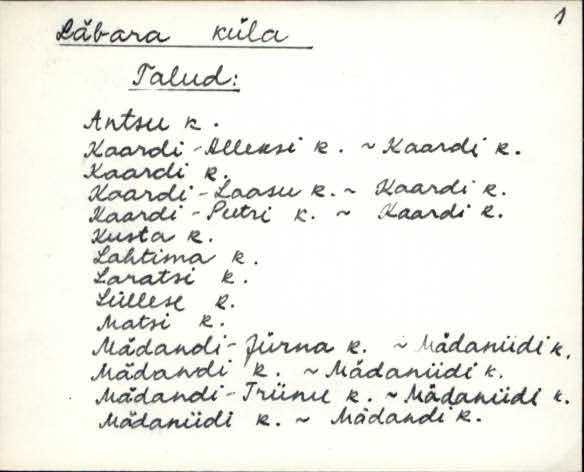 1
Läbara küla
Talud:
Antsu k.
Kaardi-Alleksi k. ~ Kaardi k.
Kaardi k.
Kaardi-Laasu k. ~ Kaardi k.
Kaardi-Putri k. ~ Kaardi k.
Kusta k.
Lahtima k.
Laratsi k.
Lüllese k.
Matsi k.
Mädandi-Jürna k. ~ Mädaniidi k.
Mädandi k. ~ Mädaniidi k.
Mädandi-Triinu k. ~ Mädaniidi k.
Mädaniidi k. ~ Mädandi k.